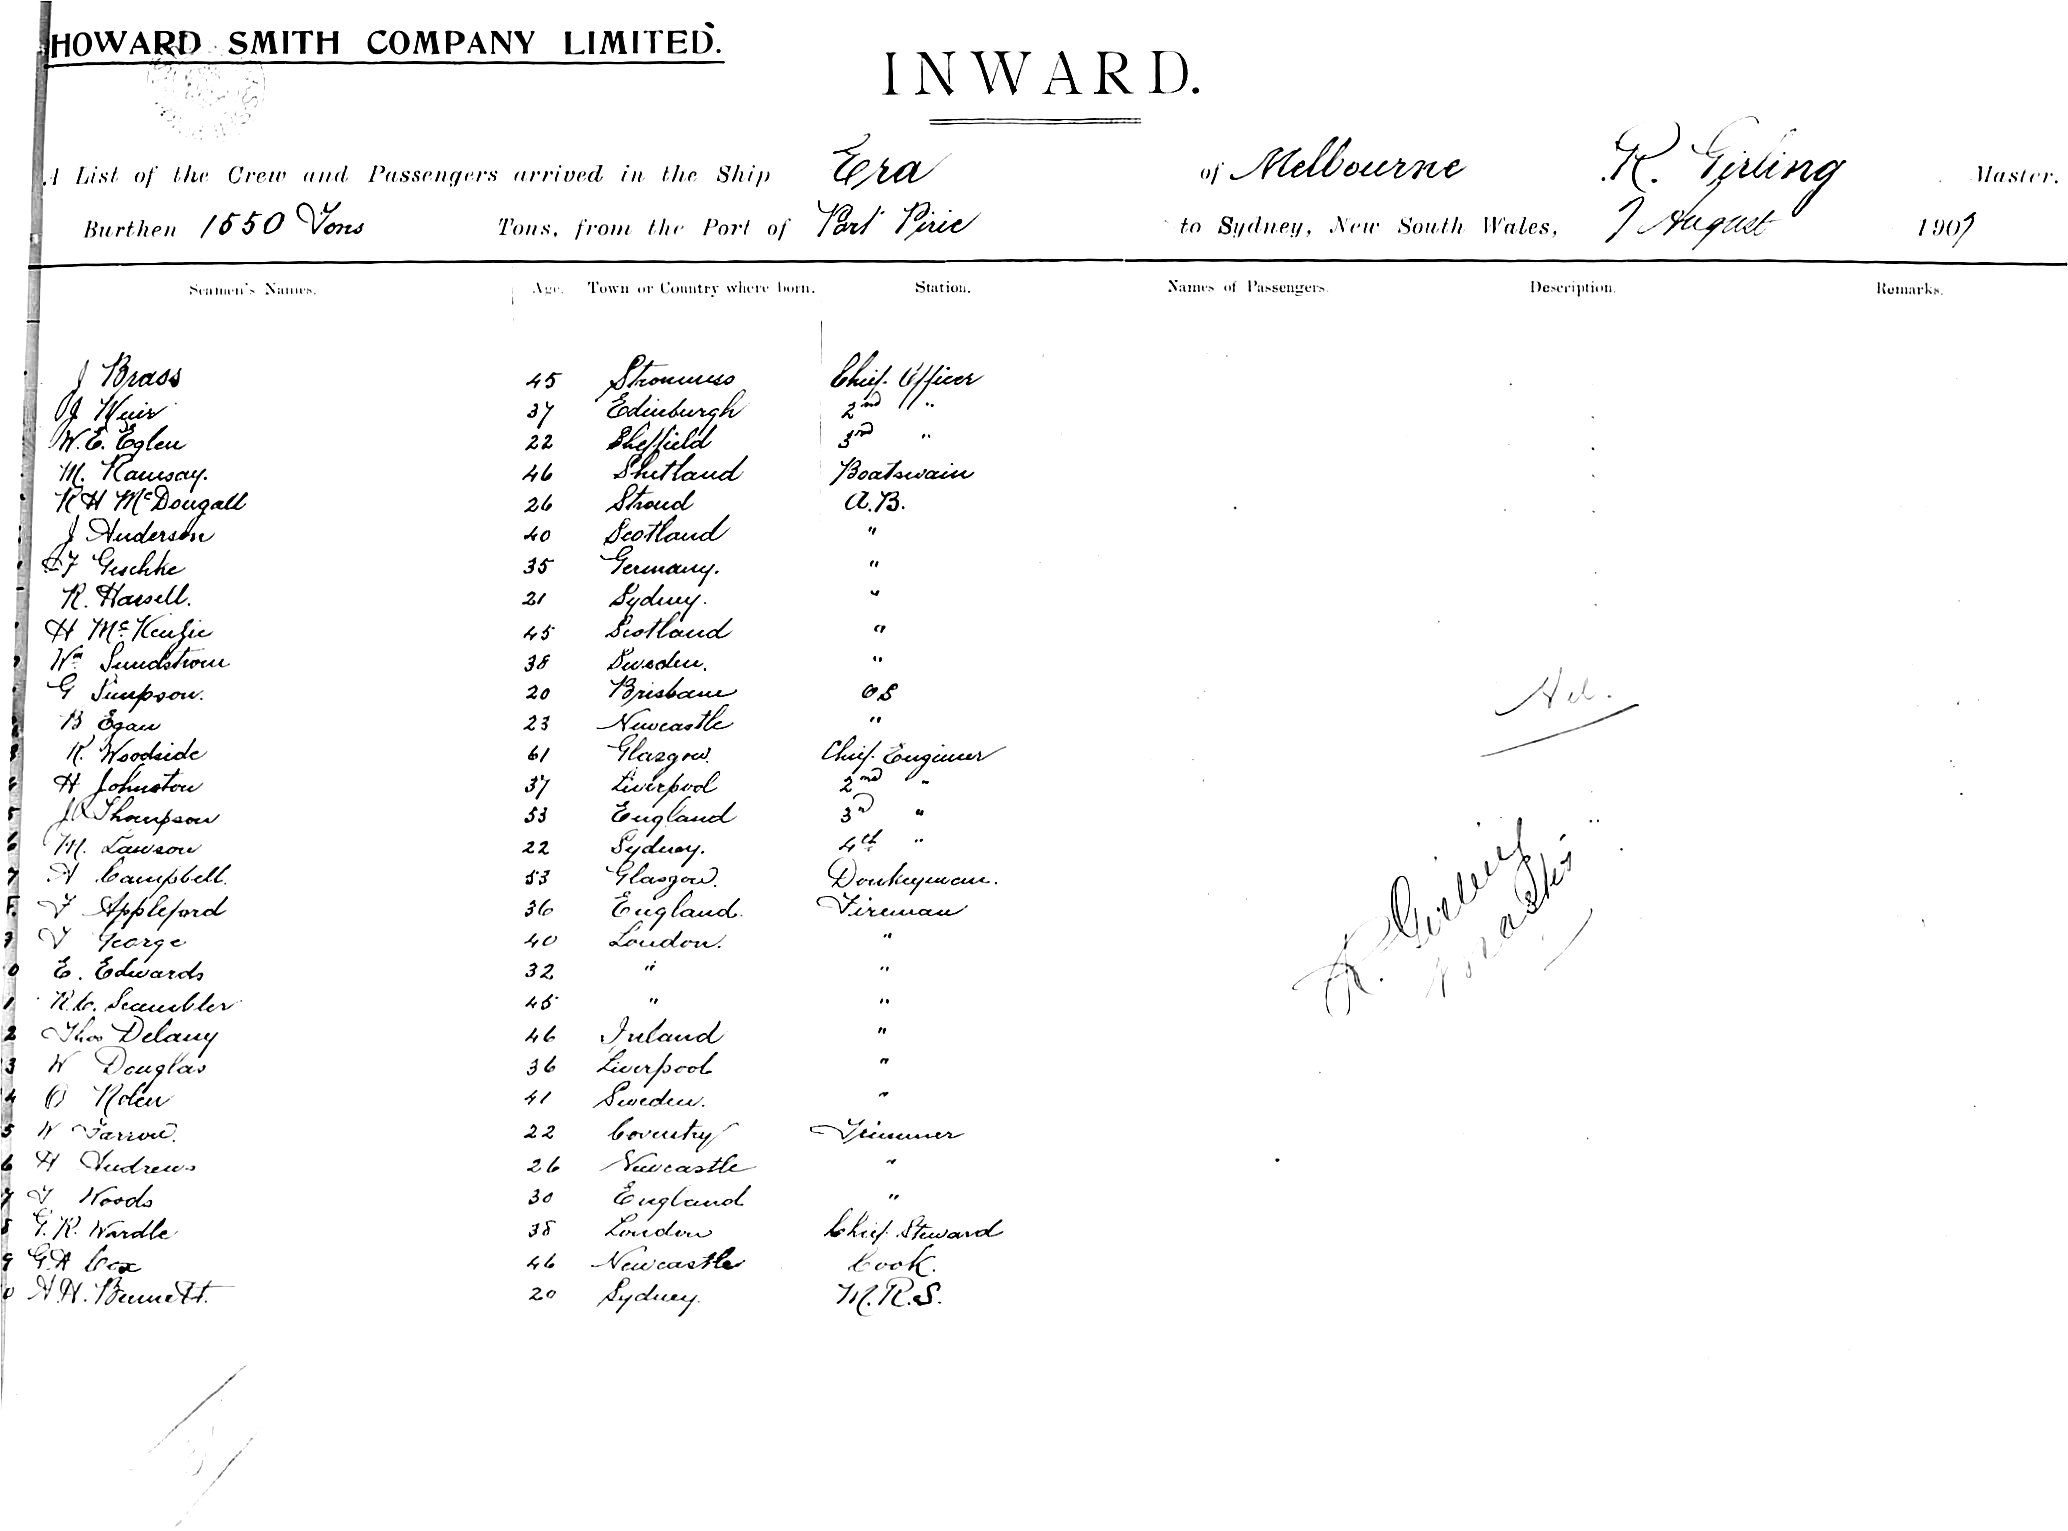 HOWARD SMITH COMPANY LIMITED.
INWARD.
A List of the Crew and Passengers arrived in the Ship Era of Melbourne R. Girling Master.
Burthen 1550 Tons Tons, from the Port of Port Pirie to Sydney, New South Wales, 7 August 1907
Seamen's Names. Age. Town or Country where born. Station. Names of Passengers. Description. Remarks.
J Brass 45 Stromness Chief Officer
J Weir 37 Edinburgh 2nd "
W. E. Eglen 22 Sheffield 3rd "
M. Ramsay. 46 Shetland Boatswain
R H McDougall 26 Stroud A.B.
J Anderson 40 Scotland "
F Geschke 35 Germany. "
R. Harsell. 21 Sydney. "
H McKenzie 45 Scotland "
Wm Sundstrom 38 Sweden. "
G Simpson. 20 Brisbane OS
B Egan 23 Newcastle "
R. Woodside 61 Glasgow. Chief Engineer
H Johnston 37 Liverpool 2nd "
J Thompson 53 England 3rd "
M. Lawson 22 Sydney. 4th "
A Campbell. 53 Glasgow. Donkeyman.
F Appleford 36 England. Fireman
F George 40 London. "
E. Edwards 32 " "
R. C. Scambler 45 " "
Thos Delany 46 Ireland "
W Douglas 36 Liverpool "
O Nolen 41 Sweden. "
W Farrow. 22 Coventry Trimmer
H Andrews 26 Newcastle "
F Woods 30 England "
G. R. Wardle 38 London Chief Steward
G A Cox 46 Newcastle Cook.
A. H. Bennett. 20 Sydney. M.R.S.
Nil.
R. Girling